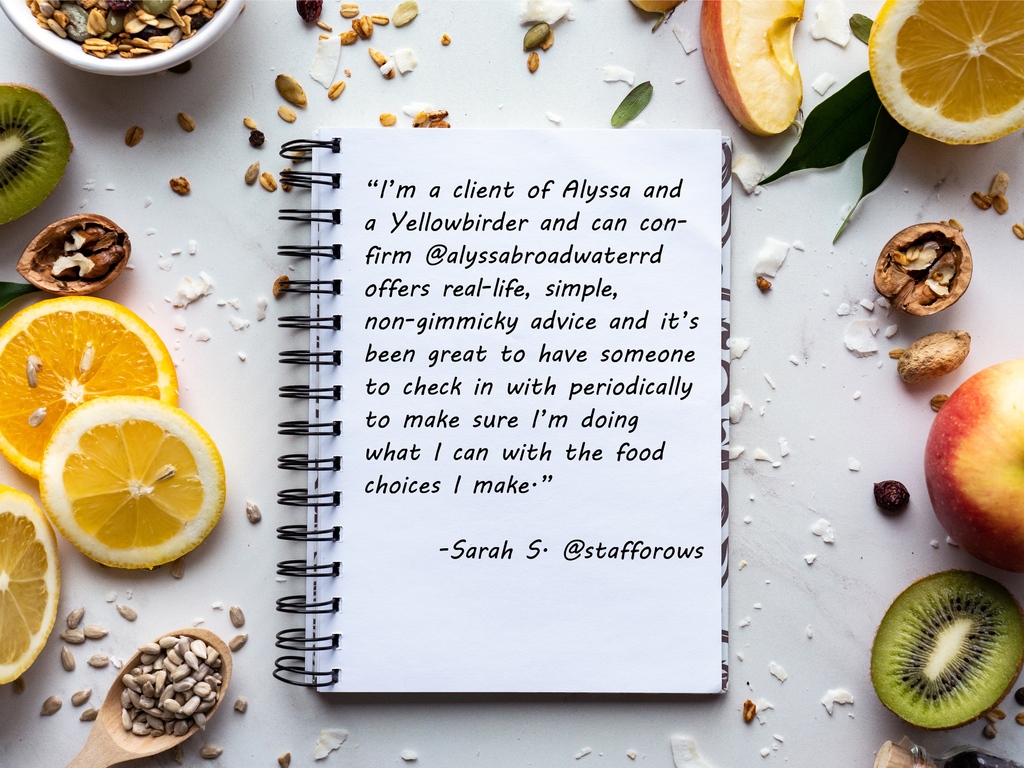 “I’m a client of Alyssa and
a Yellowbirder and can con-
firm @alyssabroadwaterrd
offers real-life, simple,
non-gimmicky advice and it’s
been great to have someone
to check in with periodically
to make sure I’m doing
what I can with the food
choices I make.”
-Sarah S. @stafforows